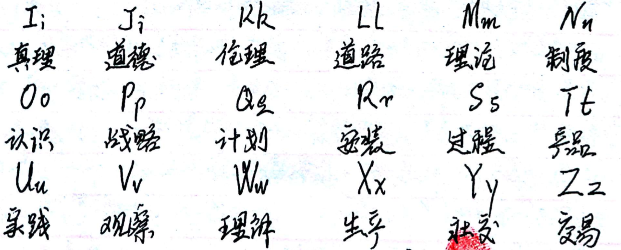 Ii Jj Kk Ll Mm Nn
真理 道德 伦理 道路 理论 制度
Oo Pp Qq Rr Ss Tt
认识 战略 计划 安装 过程 产品
Uu Vv Ww Xx Yy Zz
实践 观察 理解 生平 社交 交易